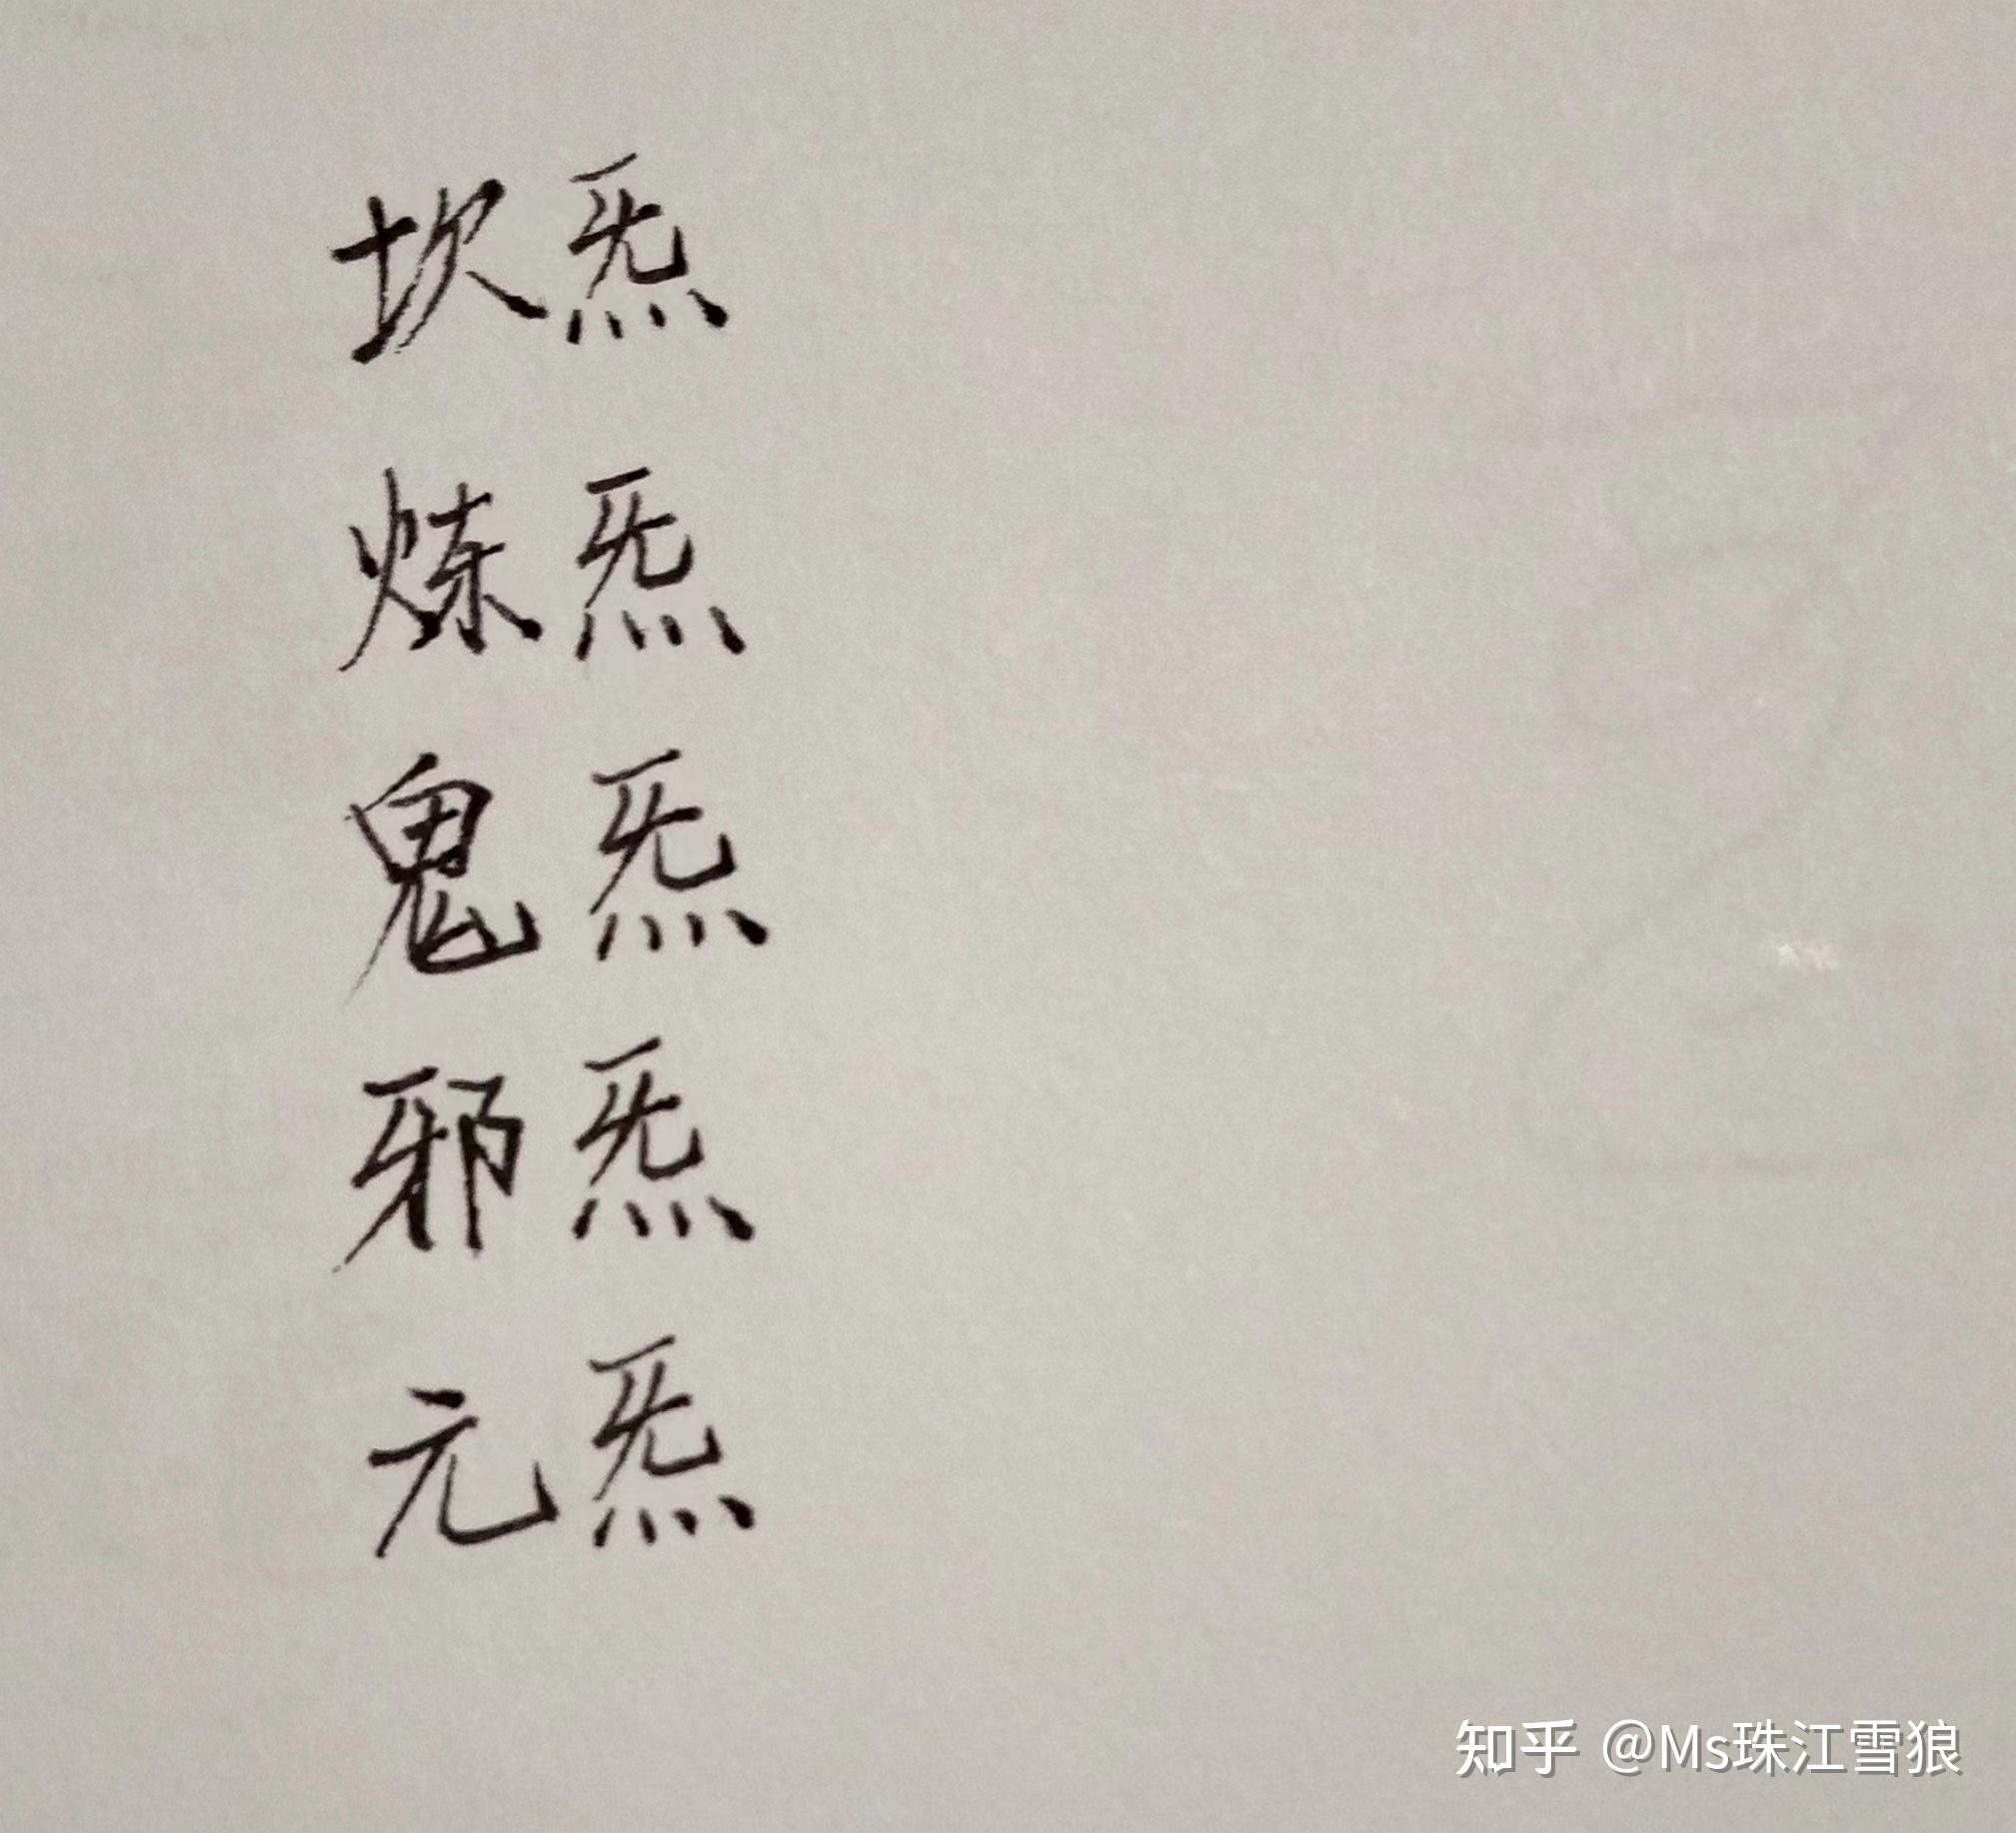 坎炁
炼炁
鬼炁
邪炁
元炁
知乎 @Ms珠江雪狼